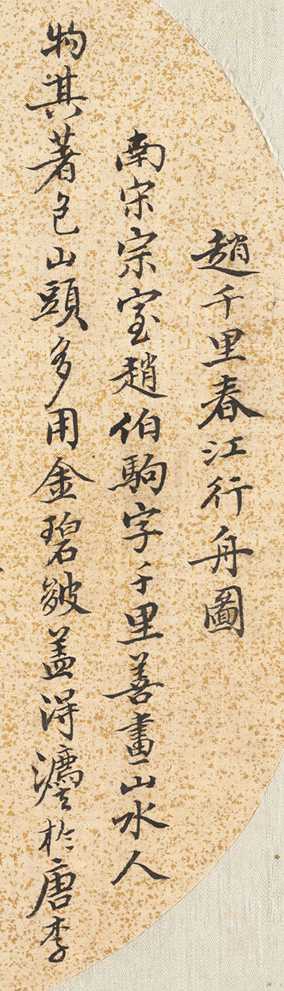 趙千里春江行舟圖
南宋宗室趙伯駒字千里善畫山水人
物其著色山頭多用金碧皴蓋得灋於唐李